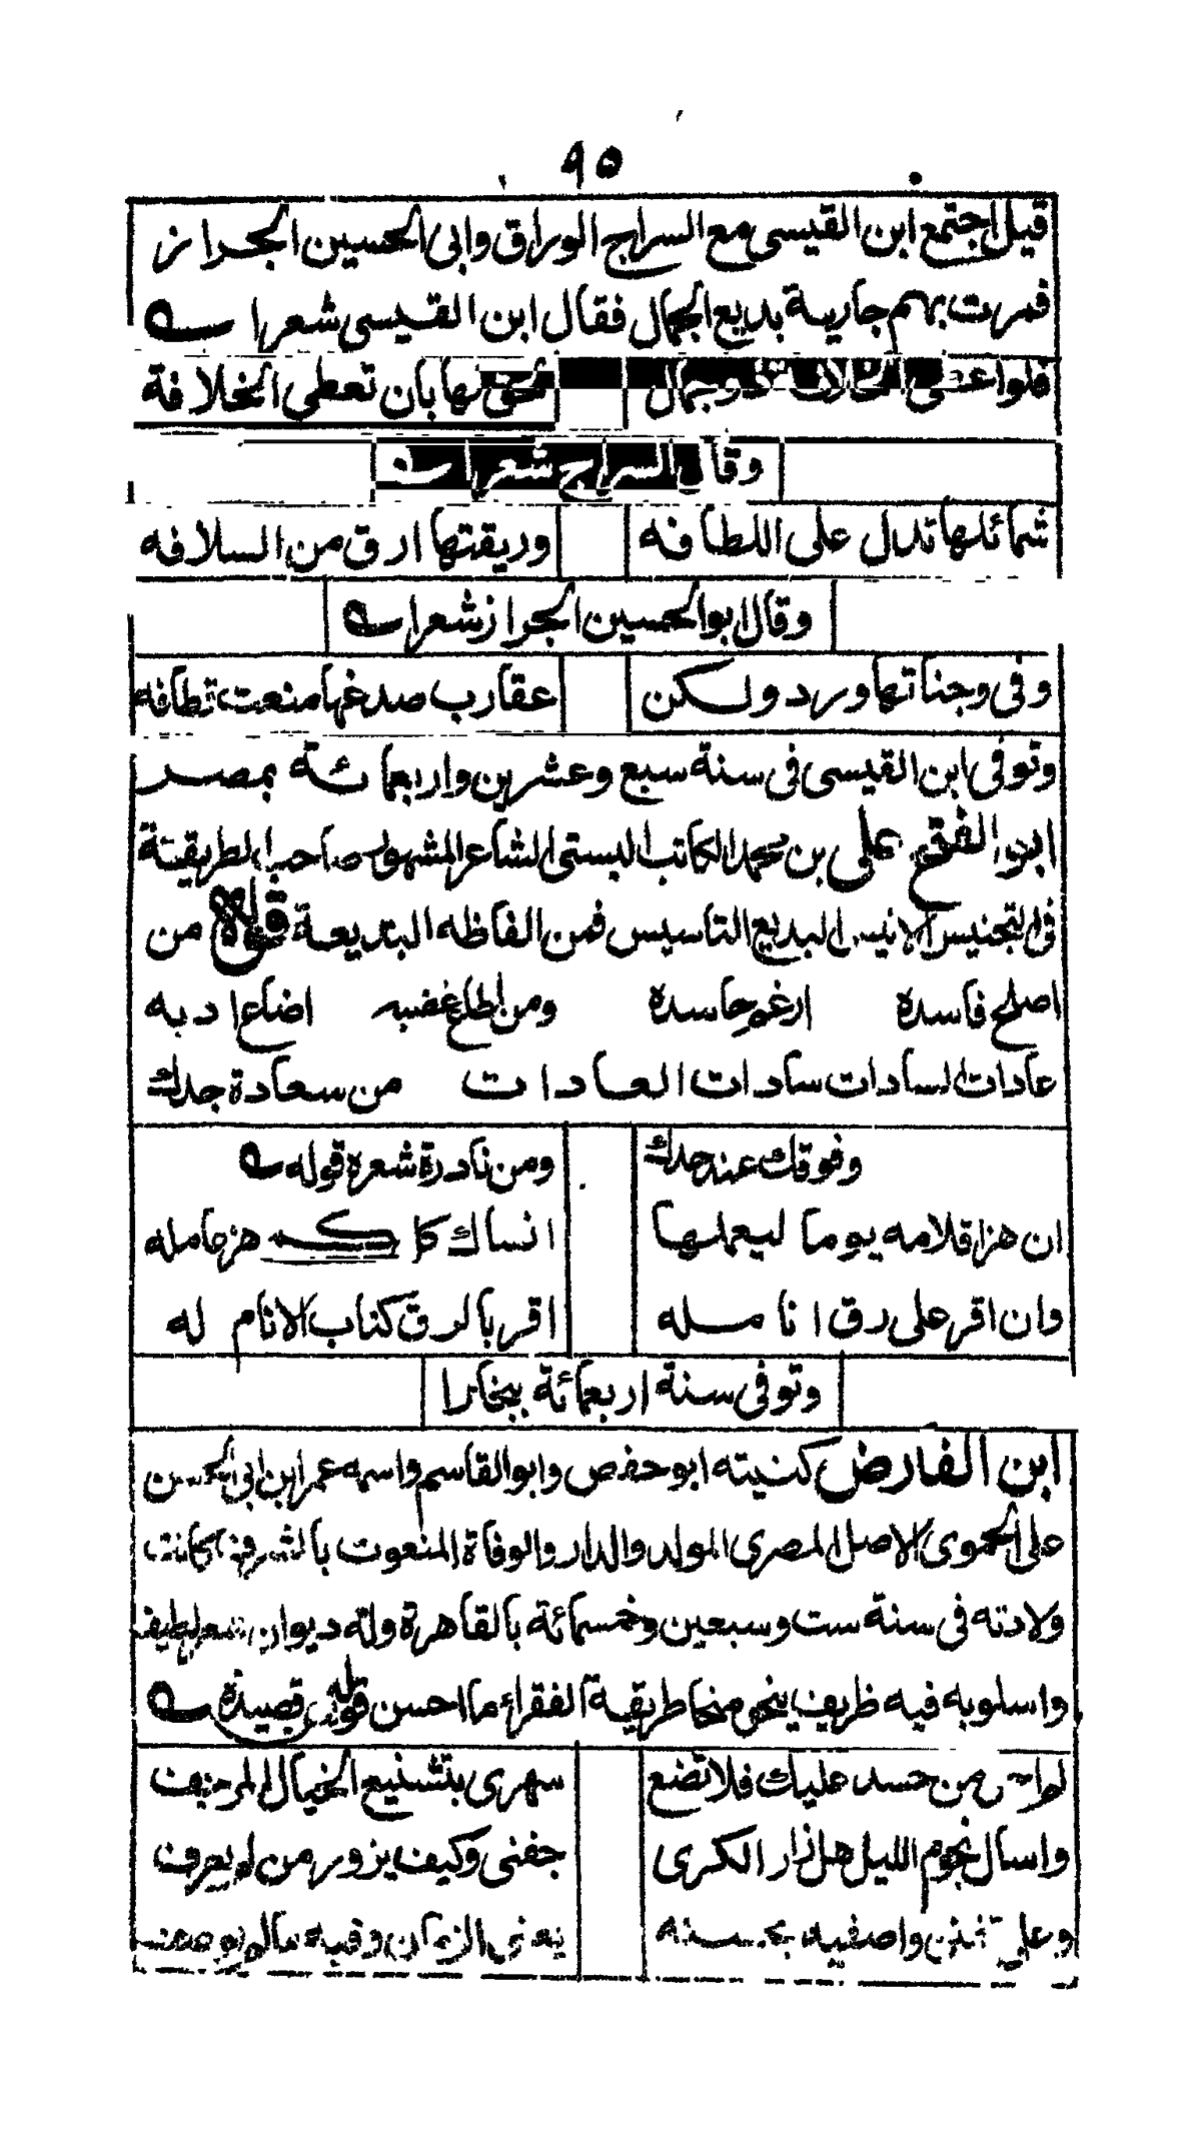 ٩٥
قيل اجتمع ابن القيسى مع السراج الوراق وابى الحسين الجراز
فمرت بهم جارية بديع الجمال فقال ابن القيسى شعرا
وجمال تحق لها بان تعطى الخلافة
وقال السراج شعرا
شمائلها تدل على اللطافه وريقتها ارق من السلافه
وقال ابو الحسين الجراز شعرا
وفى وجناتها ورد ولكن عقارب صدغها منعت قطافه
وتوفى ابن القيسى فى سنة سبع وعشرين واربعمائة بمصر
ابو الفتح على بن محمد الكاتب البستى الشاعر المشهور صاحب الطريقة
فى التجنيس الانيس البديع التاسيس فمن الفاظه البديعة قوله من
اصلح فاسدة ارغم حاسدة ومن اطاع غضبه اضاع ادبه
عادات السادات سادات العادات من سعادة جدك
وفوقك عند حدك ومن نادرة شعره قوله
ان هز اقلامه يوما ليعملها انساك كل كمي هز حامله
وان اقر على رق انامله اقر بالرق كتاب الانام له
وتوفى سنة اربعمائة ببخارا
ابن الفارض كنيته ابو حفص وابو القاسم واسمه عمر ابن ابى الحسن
على الحموى الاصل المصرى المولد والدار والوفاة المنعوت بالشرف كانت
ولادته فى سنة ست وسبعين وخمسمائة بالقاهرة وله ديوان شعر لطيف
واسلوبه فيه ظريف ينحى منحا طريقة الفقراء ما احسن قوله من قصيدة
من حسد عليك فلا تضع سهرى بتشنيع الخيال المرجف
واسال نجوم الليل هل زار الكرى جفنى وكيف يزور من لم يعرف
وعلى تفنن واصفيه بحسنه يفنى الزمان وفيه مالم يوصف